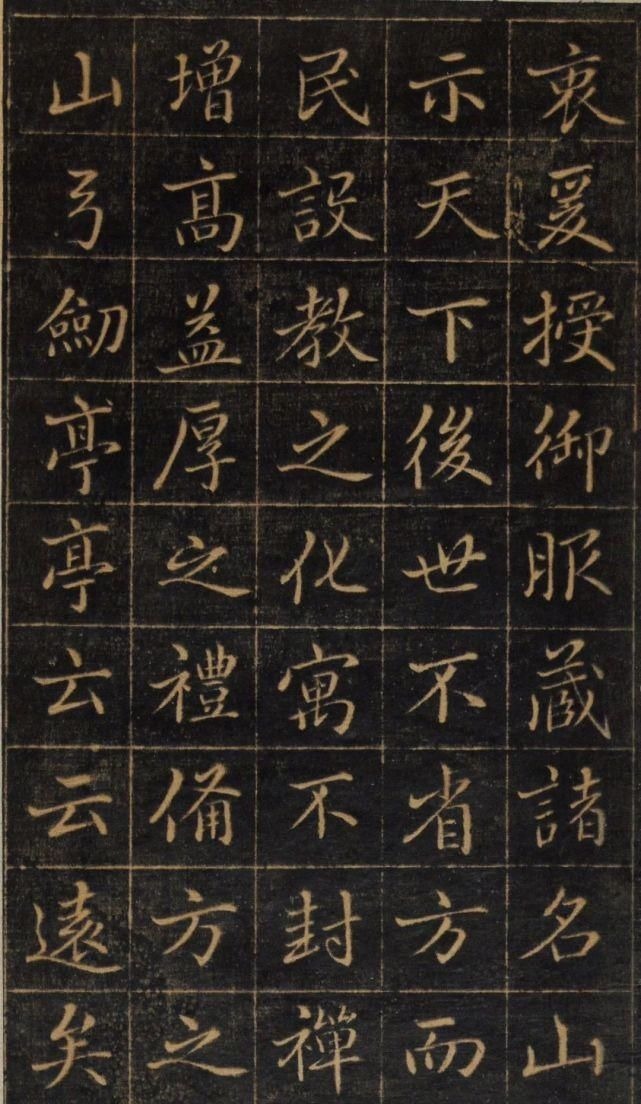 衷爰授御服藏諸名山
示天下後世不省方而
民設教之化寓不封禪
增高益厚之禮備方之
山弓劒亭亭云云遠矣